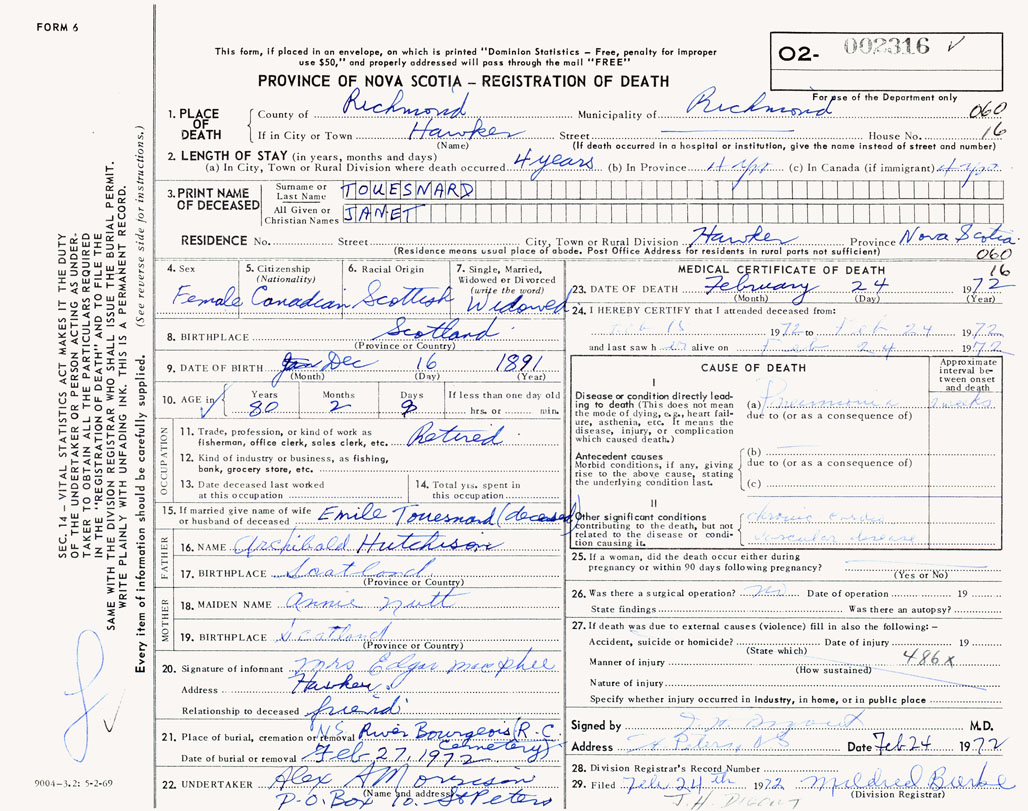 FORM 6
This form, if placed in an envelope, on which is printed "Dominion Statistics – Free, penalty for improper
use $50," and properly addressed will pass through the mail "FREE"
PROVINCE OF NOVA SCOTIA – REGISTRATION OF DEATH
O2- 002316 ✓
For use of the Department only
1. PLACE OF DEATH County of Richmond Municipality of Richmond 060
If in City or Town Hawker Street House No. 16
(Name) (If death occurred in a hospital or institution, give the name instead of street and number)
2. LENGTH OF STAY (in years, months and days)
(a) In City, Town or Rural Division where death occurred 4 years (b) In Province 4 yrs (c) In Canada (if immigrant) 4 yrs
3. PRINT NAME OF DECEASED Surname or Last Name TOUESNARD
All Given or Christian Names JANET
RESIDENCE No. Street City, Town or Rural Division Hawker Province Nova Scotia
(Residence means usual place of abode. Post Office Address for residents in rural parts not sufficient) 060
16
4. Sex Female
5. Citizenship (Nationality) Canadian
6. Racial Origin Scottish
7. Single, Married, Widowed or Divorced (write the word) Widowed
8. BIRTHPLACE Scotland
(Province or Country)
9. DATE OF BIRTH Jan Dec 16 1891
(Month) (Day) (Year)
10. AGE in ✓ Years 80 Months 2 Days 8 If less than one day old hrs. or min.
OCCUPATION
11. Trade, profession, or kind of work as
fisherman, office clerk, sales clerk, etc. Retired
12. Kind of industry or business, as fishing,
bank, grocery store, etc.
13. Date deceased last worked
at this occupation
14. Total yrs. spent in
this occupation
15. If married give name of wife
or husband of deceased Emile Touesnard (deceased)
FATHER
16. NAME Archibald Hutchison
17. BIRTHPLACE Scotland
(Province or Country)
MOTHER
18. MAIDEN NAME Annie Nutt
19. BIRTHPLACE Scotland
(Province or Country)
20. Signature of informant Mrs Edgar MacPhee
Address Hawker
Relationship to deceased friend
21. Place of burial, cremation or removal N.S. River Bourgeois (R.C. Cemetery)
Date of burial or removal Feb 27, 1972
22. UNDERTAKER Alex A Morrison
(Name and address)
P.O. Box 10. St Peters
MEDICAL CERTIFICATE OF DEATH
23. DATE OF DEATH February 24 1972
(Month) (Day) (Year)
24. I HEREBY CERTIFY that I attended deceased from:
1972 to Feb 24 1972
and last saw her alive on Feb 24 1972
CAUSE OF DEATH
Approximate interval between onset and death
I
Disease or condition directly lead-
ing to death (This does not mean
the mode of dying, e.g., heart fail-
ure, asthenia, etc. It means the
disease, injury, or complication
which caused death.)
(a) Pneumonia weeks
due to (or as a consequence of)
Antecedent causes
Morbid conditions, if any, giving
rise to the above cause, stating
the underlying condition last.
(b)
due to (or as a consequence of)
(c)
II
Other significant conditions
contributing to the death, but not
related to the disease or condi-
tion causing it.
chronic cardio
vascular disease
25. If a woman, did the death occur either during
pregnancy or within 90 days following pregnancy?
(Yes or No)
26. Was there a surgical operation? no Date of operation 19
State findings Was there an autopsy?
27. If death was due to external causes (violence) fill in also the following: –
Accident, suicide or homicide? Date of injury 19
(State which)
Manner of injury 486x
(How sustained)
Nature of injury
Specify whether injury occurred in industry, in home, or in public place
Signed by M.D.
Address St Peters, NS Date Feb 24 1972
28. Division Registrar's Record Number
29. Filed Feb 24th 1972 Mildred Burke
(Division Registrar)
SEC. 14 – VITAL STATISTICS ACT MAKES IT THE DUTY
OF THE UNDERTAKER OR PERSON ACTING AS UNDER-
TAKER TO OBTAIN ALL THE PARTICULARS REQUIRED
IN THE "REGISTRATION OF DEATH" AND TO FILE THE
SAME WITH THE DIVISION REGISTRAR WHO SHALL ISSUE THE BURIAL PERMIT.
WRITE PLAINLY WITH UNFADING INK. THIS IS A PERMANENT RECORD.
Every item of information should be carefully supplied. (See reverse side for instructions.)
9004–3.2: 5-2-69